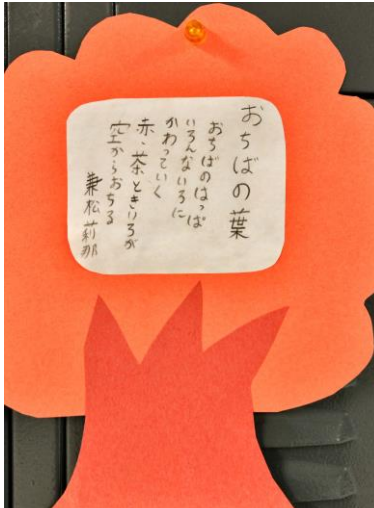 おちばの葉
おちばのはっぱ
いろんないろに
かわっていく
赤、茶ときいろが
空からおちる
兼松莉那